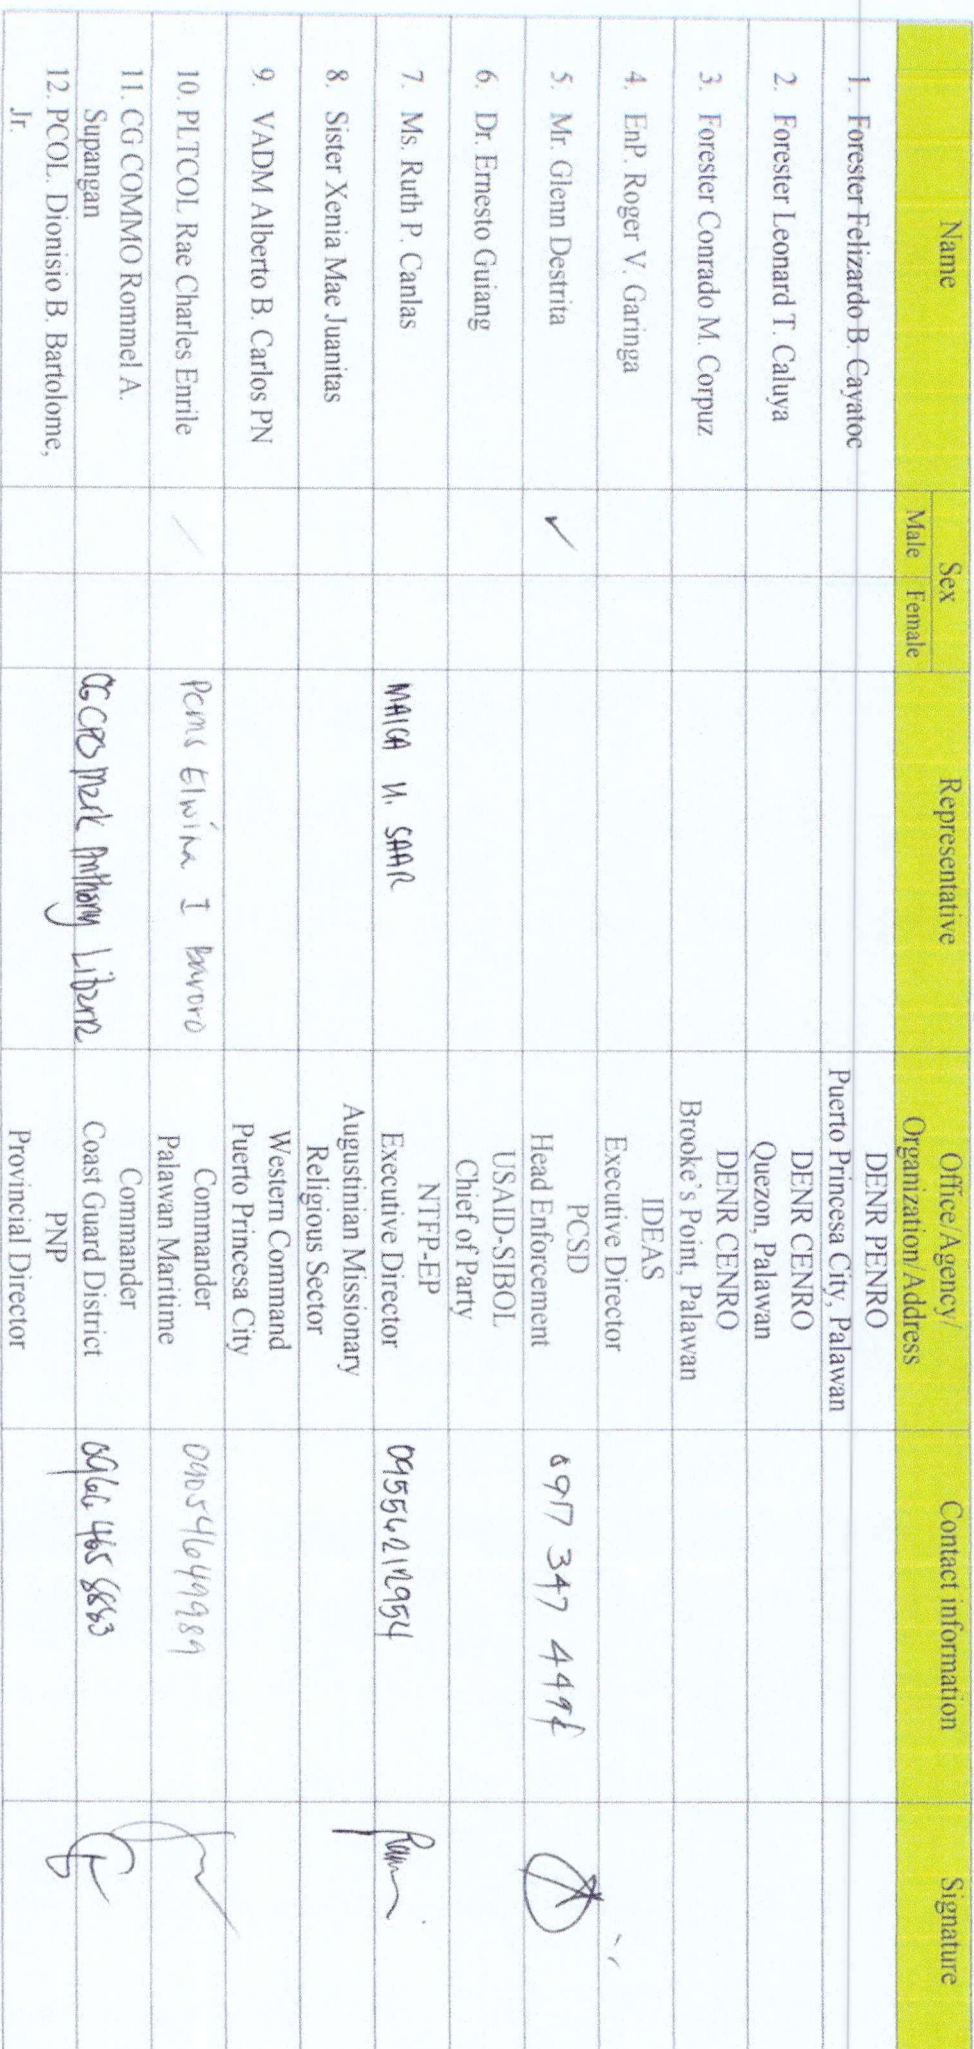 Name
Sex
Male
Female
Representative
Office/Agency/
Organization/Address
Contact information
Signature
1. Forester Felizardo B. Cayatoc
DENR PENRO
Puerto Princesa City, Palawan
2. Forester Leonard T. Caluya
DENR CENRO
Quezon, Palawan
3. Forester Conrado M. Corpuz
DENR CENRO
Brooke's Point, Palawan
4. EnP. Roger V. Garinga
IDEAS
Executive Director
5. Mr. Glenn Destrita
✓
PCSD
Head Enforcement
0917 347 4498
6. Dr. Ernesto Guiang
USAID-SIBOL
Chief of Party
7. Ms. Ruth P. Canlas
MAICA U. SAAR
NTFP-EP
Executive Director
09556212954
8. Sister Xenia Mae Juanitas
Augustinian Missionary
Religious Sector
9. VADM Alberto B. Carlos PN
Western Command
Puerto Princesa City
10. PLTCOL Rae Charles Enrile
PCMS Elwina I
Commander
Palawan Maritime
09054649989
11. CG COMMO Rommel A.
Supangan
Mark Anthony
Commander
Coast Guard District
0966 465 8883
12. PCOL. Dionisio B. Bartolome,
Jr.
PNP
Provincial Director